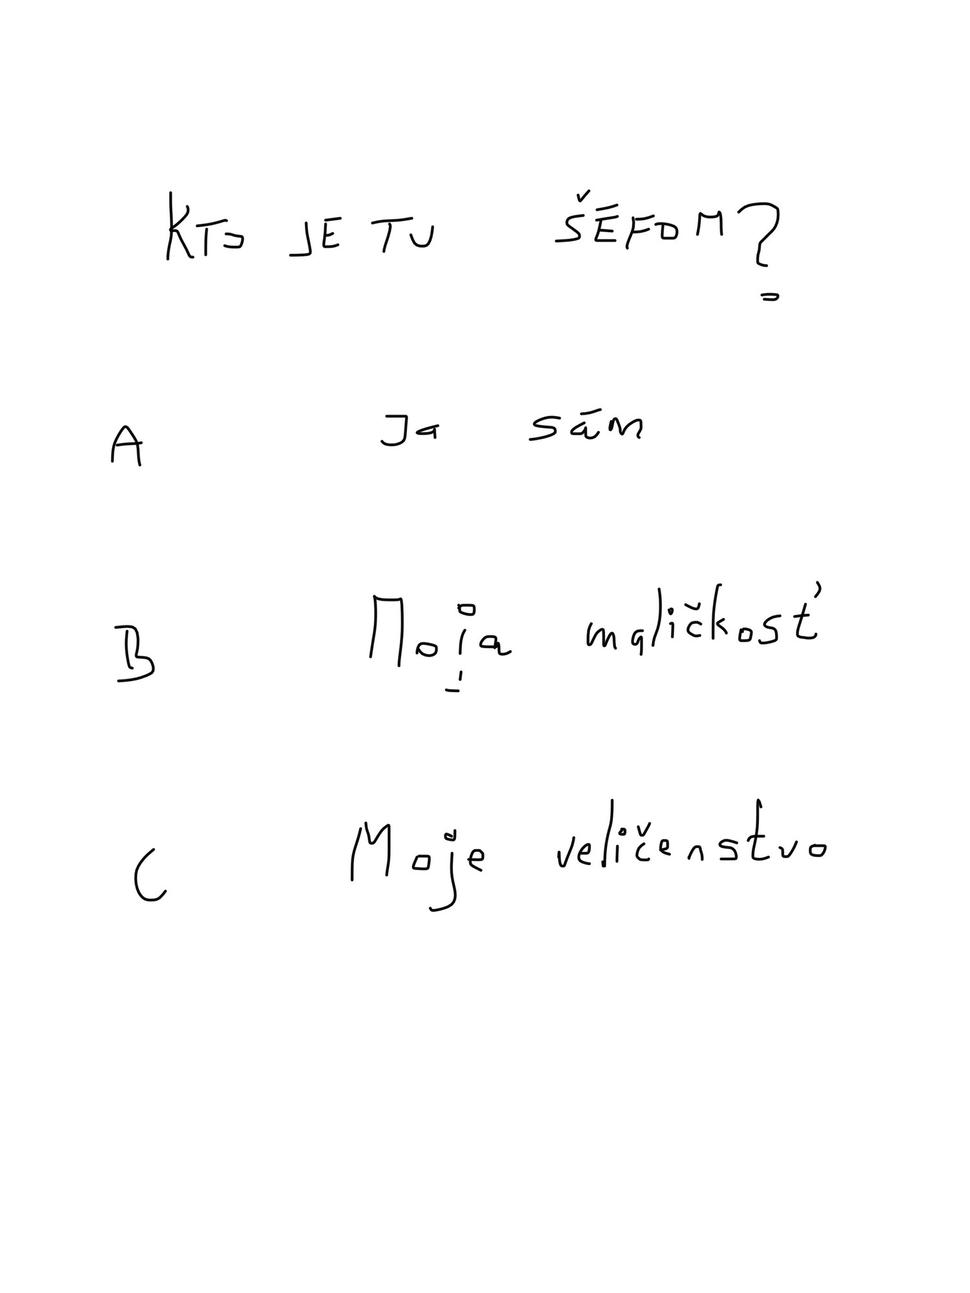 KTO JE TU ŠÉFOM?
A Ja sám
B Moja maličkosť
C Moje veličenstvo